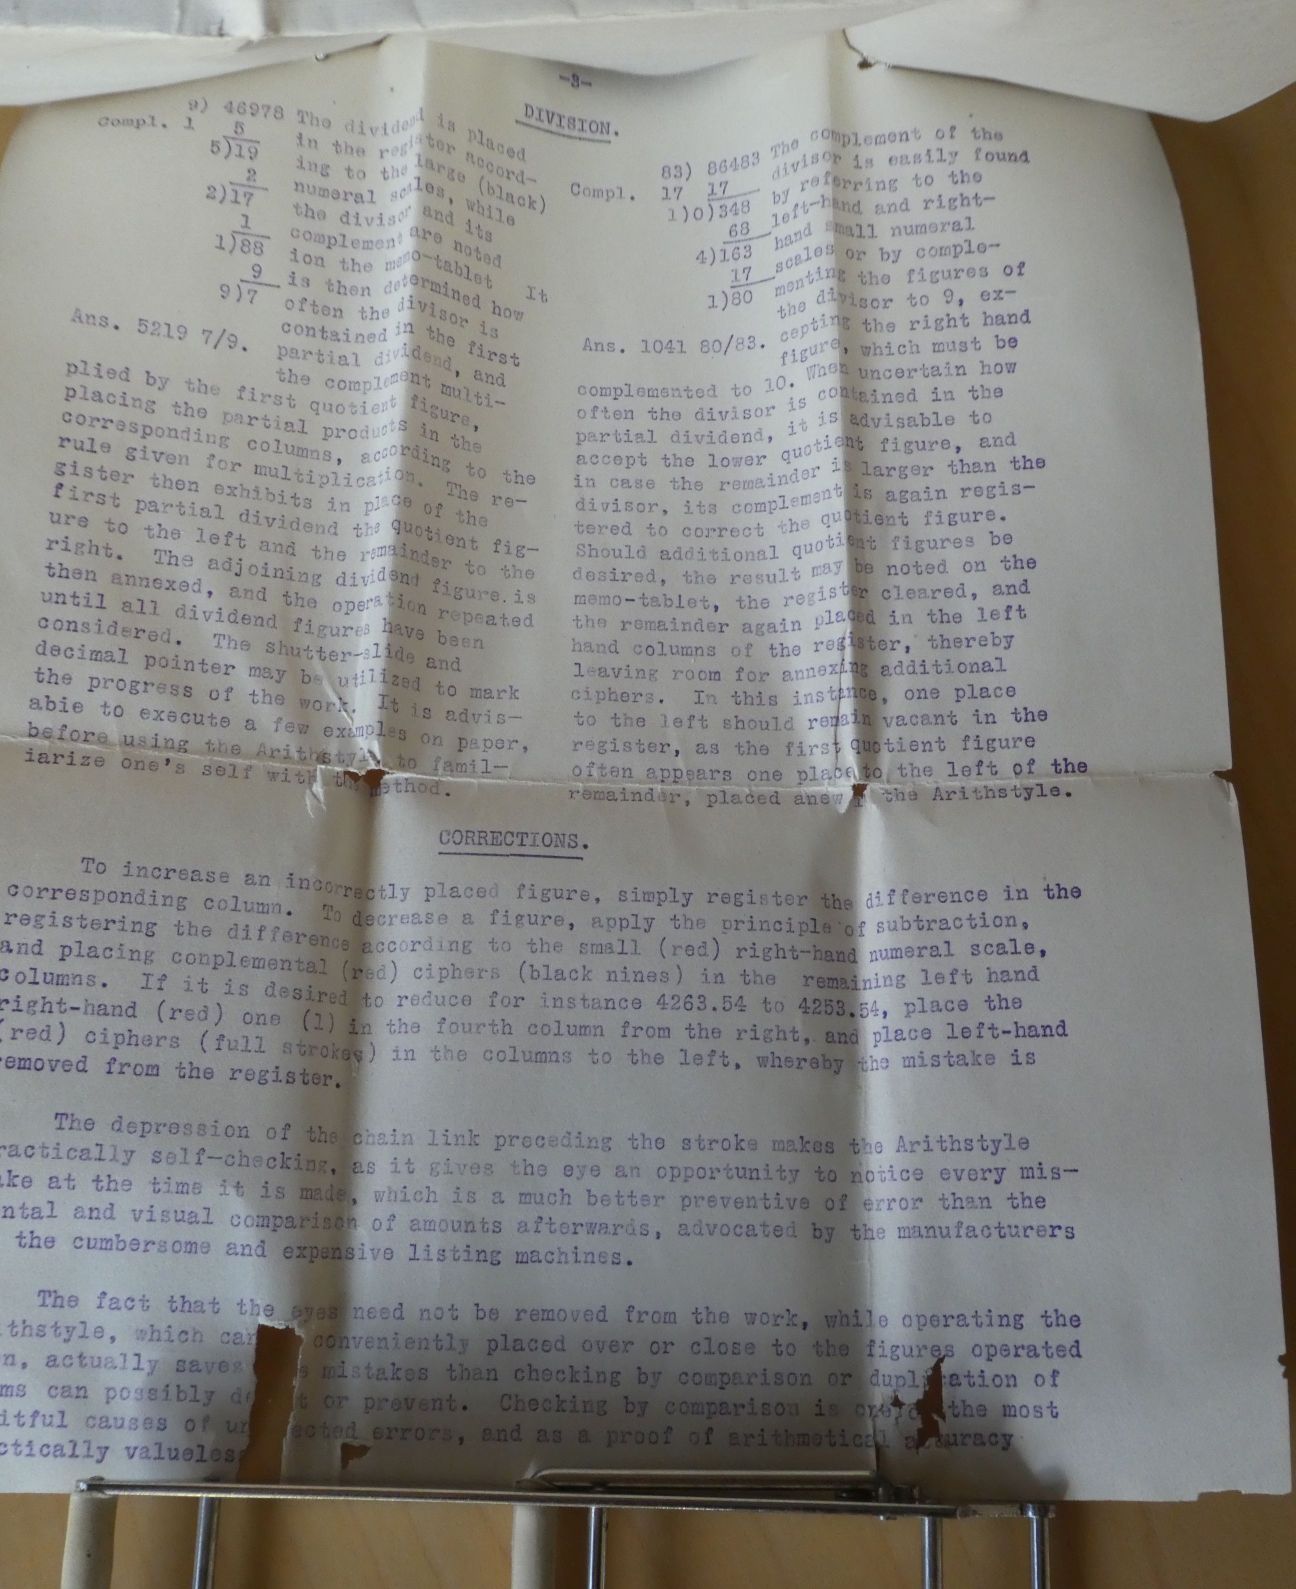 -3-
DIVISION.
9) 46978 The dividend is placed
Compl. 1 5 in the register accord-
5)19 ing to the large (black)
2 numeral scales, while
2)17 the divisor and its
1 complement are noted
1)88 ion the memo-tablet It
9 is then determined how
9)7 often the divisor is
contained in the first
Ans. 5219 7/9. partial dividend, and
the complement multi-
plied by the first quotient figure,
placing the partial products in the
corresponding columns, according to the
rule given for multiplication. The re-
gister then exhibits in place of the
first partial dividend the quotient fig-
ure to the left and the remainder to the
right. The adjoining dividend figure.is
then annexed, and the operation repeated
until all dividend figures have been
considered. The shutter-slide and
decimal pointer may be utilized to mark
the progress of the work. It is advis-
abie to execute a few examples on paper,
before using the Arithstyle to famil-
iarize one's self with the method.
83) 86483 The complement of the
Compl. 17 17 divisor is easily found
1)0)348 by referring to the
68 left-hand and right-
4)163 hand small numeral
17 scales or by comple-
1)80 menting the figures of
the divisor to 9, ex-
Ans. 1041 80/83. cepting the right hand
figure, which must be
complemented to 10. When uncertain how
often the divisor is contained in the
partial dividend, it is advisable to
accept the lower quotient figure, and
in case the remainder is larger than the
divisor, its complement is again regis-
tered to correct the quotient figure.
Should additional quotient figures be
desired, the result may be noted on the
memo-tablet, the register cleared, and
the remainder again placed in the left
hand columns of the register, thereby
leaving room for annexing additional
ciphers. In this instance, one place
to the left should remain vacant in the
register, as the first quotient figure
often appears one place to the left of the
remainder, placed anew the Arithstyle.
CORRECTIONS.
To increase an incorrectly placed figure, simply register the difference in the
corresponding column. To decrease a figure, apply the principle of subtraction,
registering the difference according to the small (red) right-hand numeral scale,
and placing conplemental (red) ciphers (black nines) in the remaining left hand
columns. If it is desired to reduce for instance 4263.54 to 4253.54, place the
right-hand (red) one (1) in the fourth column from the right, and place left-hand
(red) ciphers (full strokes) in the columns to the left, whereby the mistake is
emoved from the register.
The depression of the chain link preceding the stroke makes the Arithstyle
ractically self-checking, as it gives the eye an opportunity to notice every mis-
ake at the time it is made, which is a much better preventive of error than the
ntal and visual comparison of amounts afterwards, advocated by the manufacturers
the cumbersome and expensive listing machines.
The fact that the eyes need not be removed from the work, while operating the
ithstyle, which can conveniently placed over or close to the figures operated
n, actually saves mistakes than checking by comparison or duplication of
ms can possibly or prevent. Checking by comparison is one the most
itful causes of errors, and as a proof of arithmetical accuracy
ctically valueless